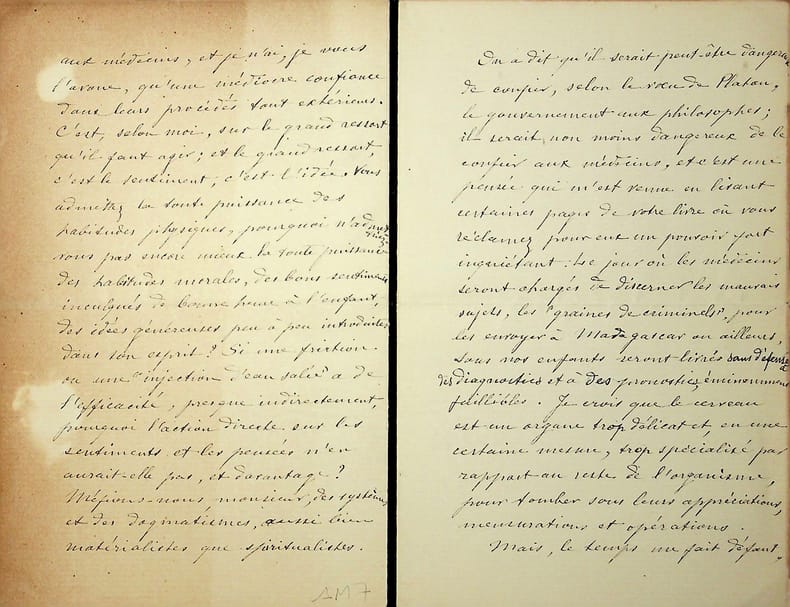 aux médecins, et je n'ai, je vous
l'avoue, qu'une médiocre confiance
dans leurs procédés tout extérieurs.
C'est, selon moi, sur le grand ressort
qu'il faut agir; et le grand ressort,
c'est le sentiment, c'est l'idée. Vous
admettez la toute puissance des
habitudes physiques, pourquoi n'admettriez
vous pas encore mieux la toute puissance
des habitudes morales, des bons sentiments
inculqués de bonne heure à l'enfant,
des idées généreuses peu à peu introduites
dans son esprit? Si une friction
ou une "injection d'eau salée" a de
l'efficacité, presque indirectement,
pourquoi l'action directe sur les
sentiments et les pensées n'en
aurait-elle pas, et davantage?
Méfions-nous monsieur, des systèmes
et des dogmatismes, aussi bien
matérialistes que spiritualistes.
AM7
On a dit qu'il serait peut-être dangereux
de confier, selon le vœu de Platon,
le gouvernement aux philosophes;
il serait non moins dangereux de le
confier aux médecins, et c'est une
pensée qui m'est venue en lisant
certaines pages de votre livre où vous
réclamez pour eux un pouvoir fort
inquiétant: Le jour où les médecins
seront chargés de discerner les mauvais
sujets, les "graines de criminels", pour
les envoyer à Madagascar ou ailleurs,
tous nos enfants seront livrés sans défense à
des diagnostics et à des pronostics éminemment
faillibles. Je crois que le cerveau
est un organe trop délicat et, en une
certaine mesure, trop spécialisé par
rapport au reste de l'organisme,
pour tomber sous leurs appréciations,
mensurations et opérations.
Mais, le temps me fait défaut,